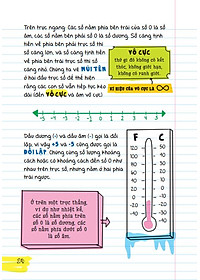 Trên trục ngang: Các số nằm phía bên trái của số 0 là số
âm, các số nằm bên phải số 0 là số dương. Số càng tịnh
tiến về phía bên phải trục số thì
số càng lớn, và số càng tịnh tiến
về phía bên trái trục số thì số
càng nhỏ. Chúng ta vẽ MŨI TÊN
ở hai đầu trục số để thể hiện
rằng các con số vẫn tiếp tục kéo
dài (đến VÔ CỰC và âm vô cực)
VÔ CỰC
thứ gì đó không có kết
thúc, không giới hạn,
không có ranh giới.
KÍ HIỆU CỦA VÔ CỰC LÀ ∞
-5 -4 -3 -2 -1 0 1 2 3 4 5
Dấu dương (+) và dấu âm (-) gọi là đối
lập, vì vậy +5 và -5 cũng được gọi là
ĐỐI LẬP. Chúng cùng số lượng khoảng
cách hoặc có khoảng cách đến số 0 như
nhau trên trục số, nhưng nằm ở hai phía
trái ngược.
Ở trên một trục thẳng,
ví dụ như nhiệt kế,
các số nằm phía trên
số 0 là số dương, và
các số nằm phía dưới số 0
là số âm.
F C
24